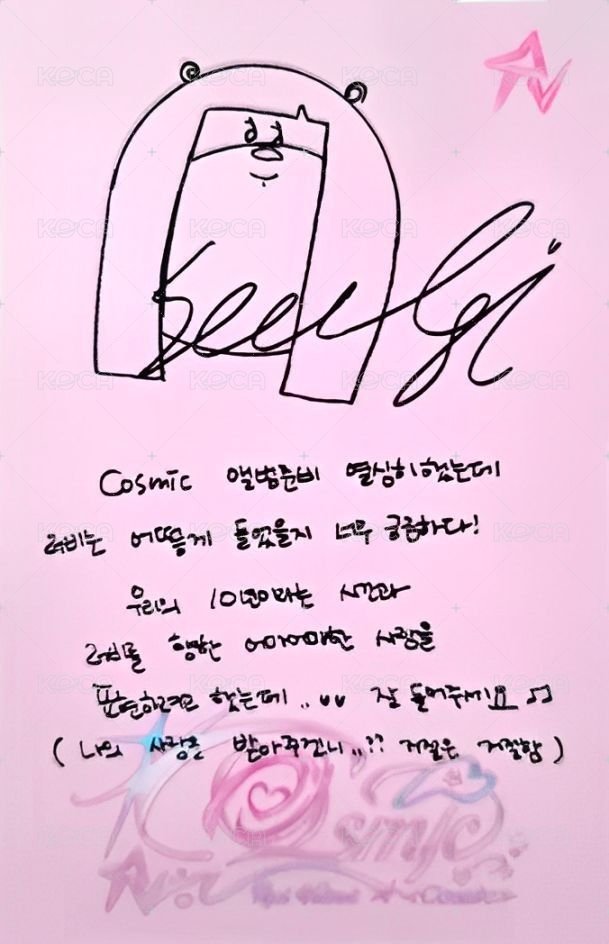 RV
Seulgi
Cosmic 앨범준비 열심히했는데
러비는 어떻게 들었을지 너무 궁금하다!
우리의 10년이라는 시간과
러비를 향한 어마어마한 사랑을
표현하려고 했는데..ㅠㅠ 잘 들어주세요♫
( 나의 사랑을 받아주겠니..?? 거절은 거절함 )
Cosmic
KOCA